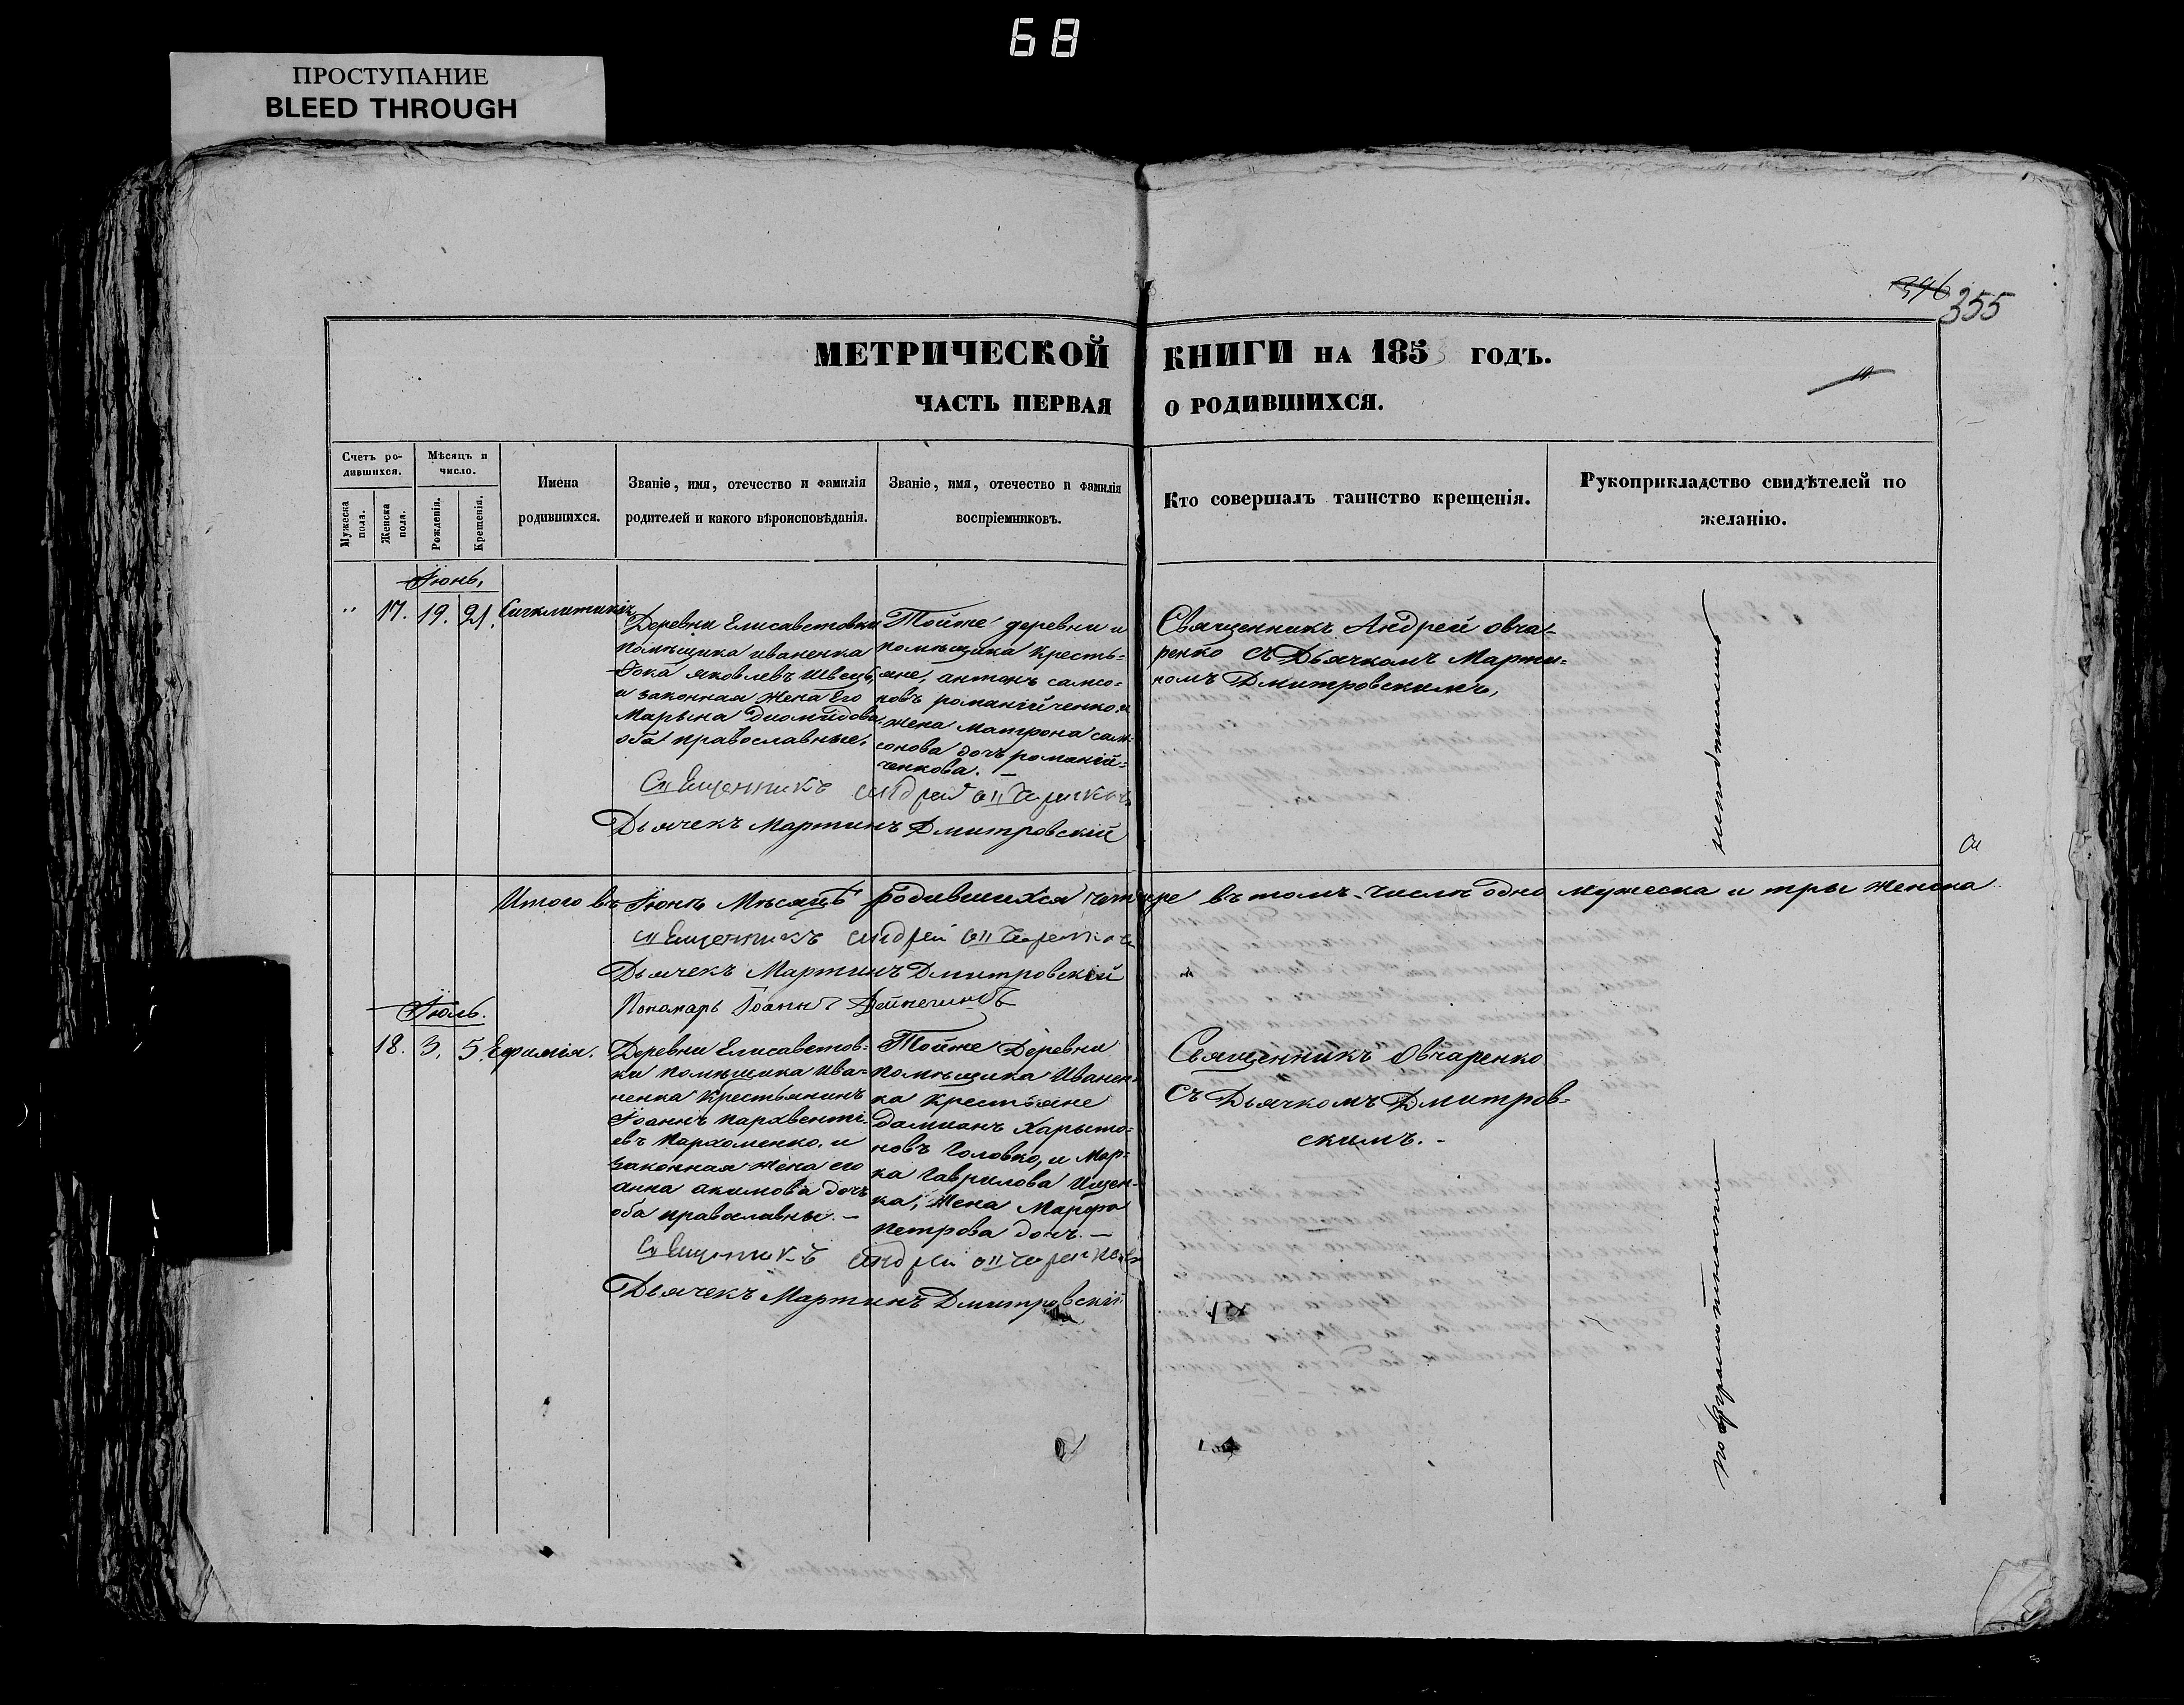 68
ПРОСТУПАНИЕ
BLEED THROUGH
396
355
МЕТРИЧЕСКОЙ КНИГИ НА 1853 ГОДЪ.
ЧАСТЬ ПЕРВАЯ О РОДИВШИХСЯ.
Счетъ ро-
дившихся.
Мужеска пола.
Женска пола.
Мѣсяцъ и
число.
Рожденія.
Крещенія.
Имена
родившихся.
Званіе, имя, отечество и фамилія
родителей и какого вѣроисповѣданія.
Званіе, имя, отечество и фамилія
воспріемниковъ.
Кто совершалъ таинство крещенія.
Рукоприкладство свидѣтелей по
желанію.
Іюнь,
17. 19. 21. Сигклитикіа
Деревни Елисаветовки
помѣщика иваненка
Фока яковлевъ Швецъ,
и законная жена Его
Марьина Диомидова
оба православные.
Тойже деревни и
помѣщика кресть=
яне, антонъ самсо=
новъ романійченко и
жена Матрона сам=
сонова дочь романій=
ченкова. –
Священникъ Андрей овча-
ренко съ Дьячкомъ Марти=
номъ Дмитровскимъ,
Священникъ Андрей Овчаренковъ
Дьячекъ Мартинъ Дмитровскій
Итого въ Іюнѣ Мѣсяцѣ родившихся четыре въ томъ числѣ одно мужеска и три женска
Священникъ Андрей Овчаренковъ
Дьячекъ Мартинъ Дмитровскій
Пономарь Іоаннъ
Іюль.
18. 3. 5. Ефимія.
Деревни Елисаветов=
ки помѣщика Ива=
ненка Крестьянинъ
Іоаннъ парѳвентіе=
въ Пархоменко, и
законная жена его
анна акимова дочь
оба православны. –
Тойже Деревни
помѣщика Иванен=
ка крестьяне
Даміанъ Харыто=
новъ Головко, и Мар=
ка Гаврилова Ищен-
ка, Жена Марфа
Петрова дочь. –
Священникъ Овчаренко
съ Дьячкомъ Дмитров=
скимъ. -
Священникъ Андрей Овчаренковъ
Дьячекъ Мартинъ Дмитровскій